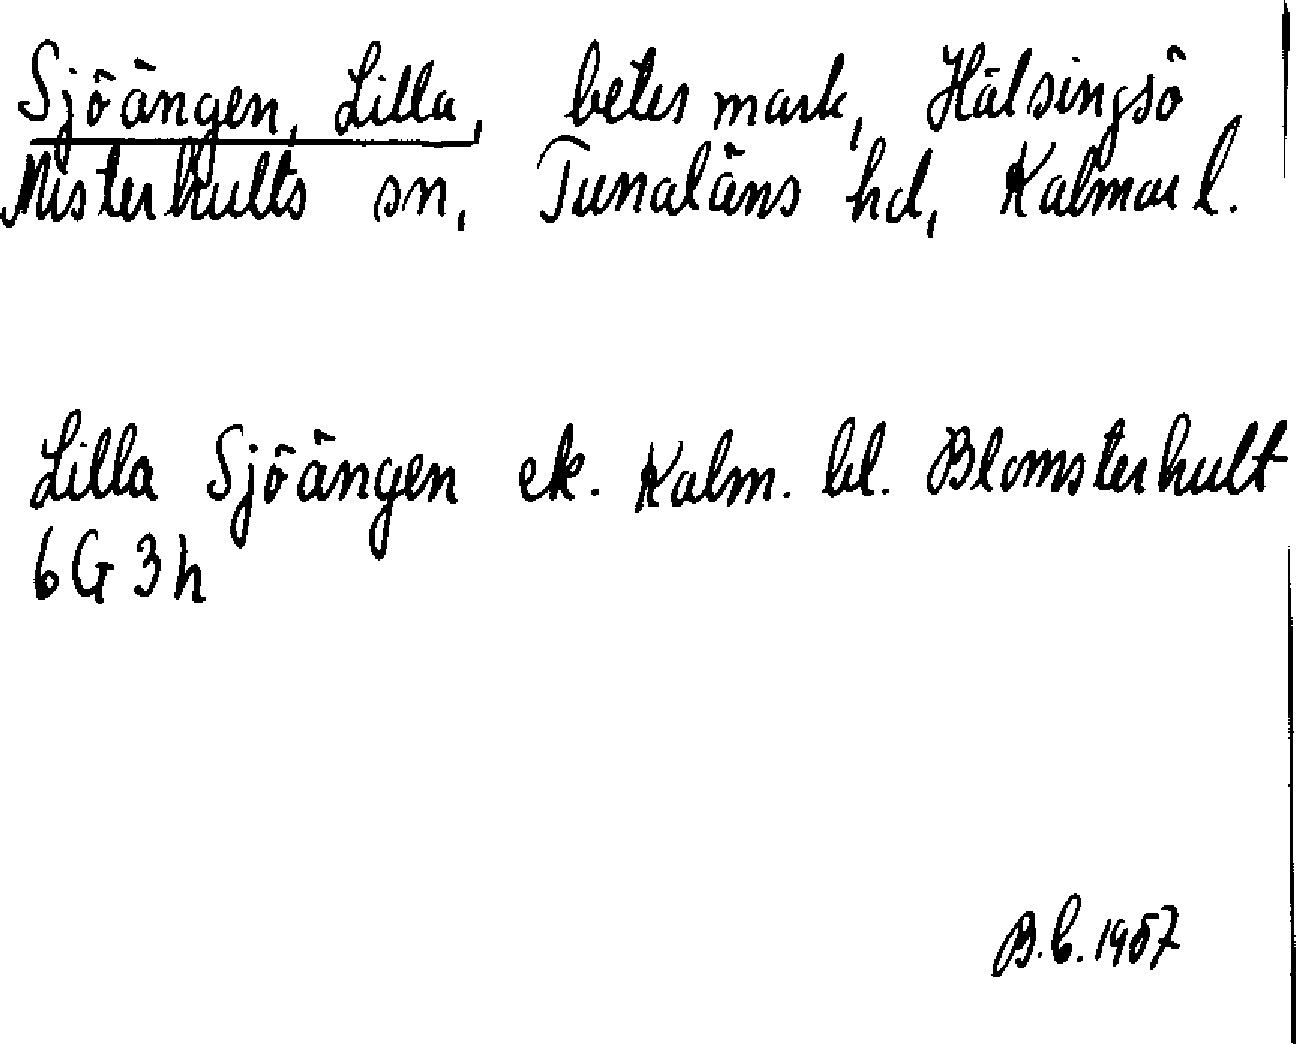 Sjöängen, Lilla, betesmark, Hälsingsö
Misterhults sn, Tunaläns hd, Kalmar l.
Lilla Sjöängen ek. Kalm. bl. Blomsterhult
6G 3h
B.b. 1957